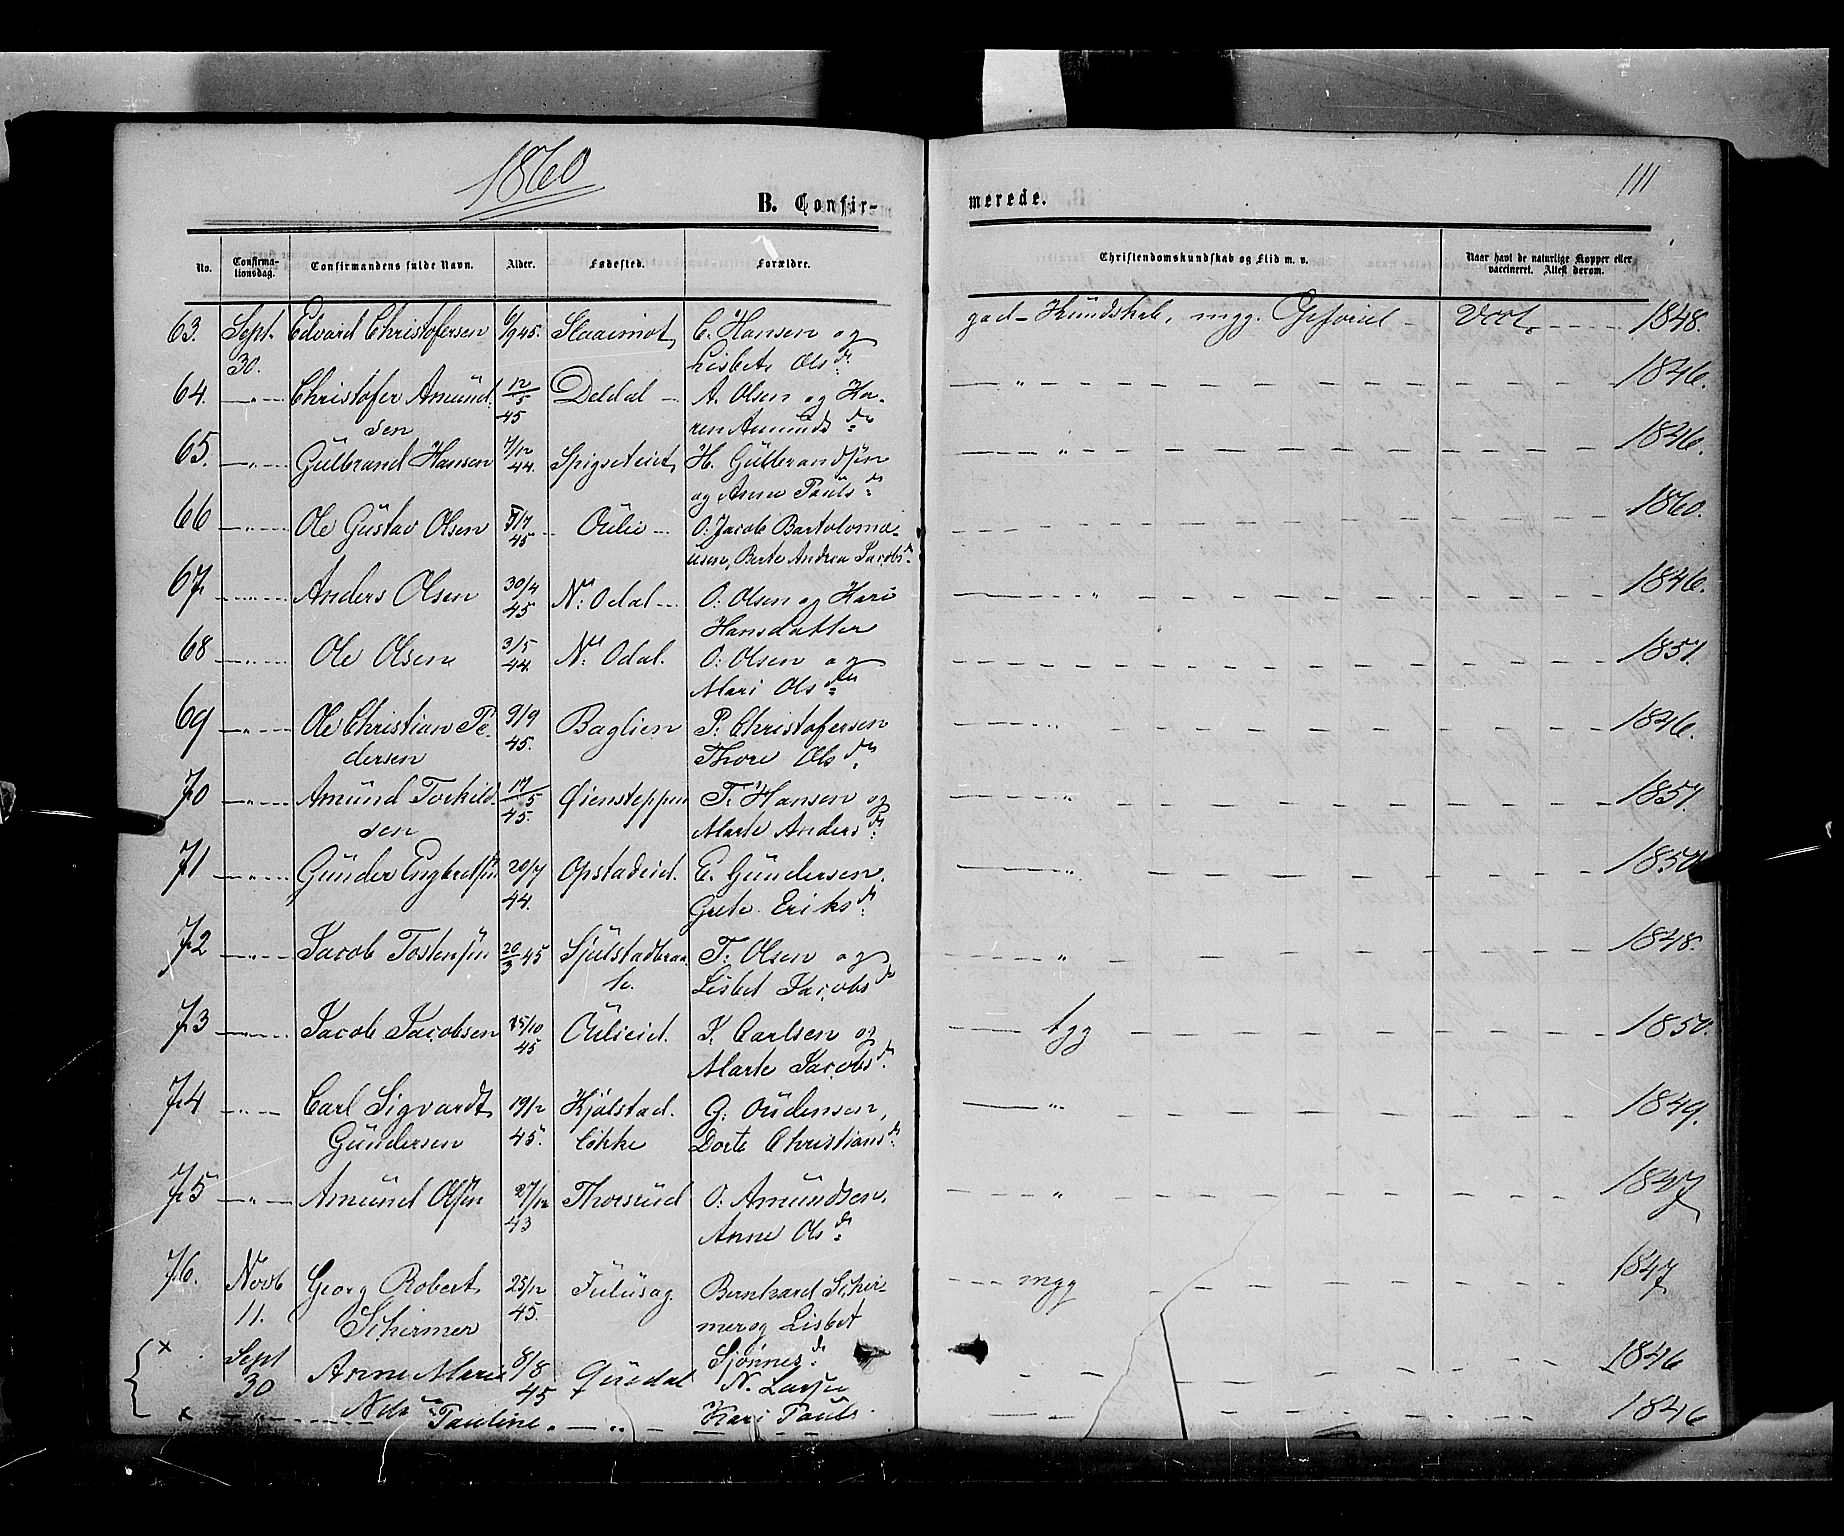 1860
111
B. Confir-
merede.
No.
Confirma-
tionsdag.
Confirmandens fulde Navn.
Alder.
Fødested.
Forældre.
Christendomskundskab og Flid m. v.
Naar havt de naturlige Kopper eller
vaccineret. Attest derom.
63. Sept. Edvard Christofersen 6/9 45. C. Hansen og god Kundskab, mgg. Vcct. 1848.
30. Lisbet Olsd:
64. Christofer Amund- 12/5 Deldal A. Olsen og Ka- 1846.
sen 45 ren Amundsd:
65. Gulbrand Hansen 7/12 Spigseteiet H. Gulbrandsøn 1846.
44. og Anne Paulsd:
66 Ole Gustav Olsen 5/7 Oulie O: Jacob Bartolomæ- 1860.
45 usen, Berte Andrea Jacobsd:
67 Anders Olsen 30/4 N: Odal O: Olsen og Kari 1846.
45 Hansdatter
68 Ole Olsen 3/5 N: Odal. O: Olsen og 1851.
44. Mari Olsd:
69 Ole Christian Pe- 9/9 Baglien P. Christofersen 1846.
dersen 45. Thore Olsd:
70 Amund Torkild- 17/5 Øiensteppen T. Hansen og 1851.
sen 45. Marte Andersd:
71 Gunder Engbretsøn 20/7 Opstadeid. E. Gundersen. 1850
44. Grete Eriksd:
72 Jacob Tostensøn 20/3 45 Sjulstadbraa- T. Olsen og 1848.
te. Lisbet Jacobsd
73 Jacob Jacobsen 15/10 Oulieid. J. Carlsen og tgg 1850.
45 Marte Jacobsd:
74 Carl Sigvardt 19/12 Kjølstad. G. Oudensen, 1849.
Gundersen 45. løkke Dorte Christiansd:
75 Amund Olsøn 27/12 Thorsrud O: Amundsen, 1847
43 Anne Olsd:
76. Novb Georg Robert 25/12 Fulusag. Bernhard Schir- mgg 1847
11. Schirmer 45. mer og Lisbet
Sjønnesd:
x Sept Anne Marie 8/8 N. Larsen 1846
30 45
x Pauline Kari Pauls. 1846